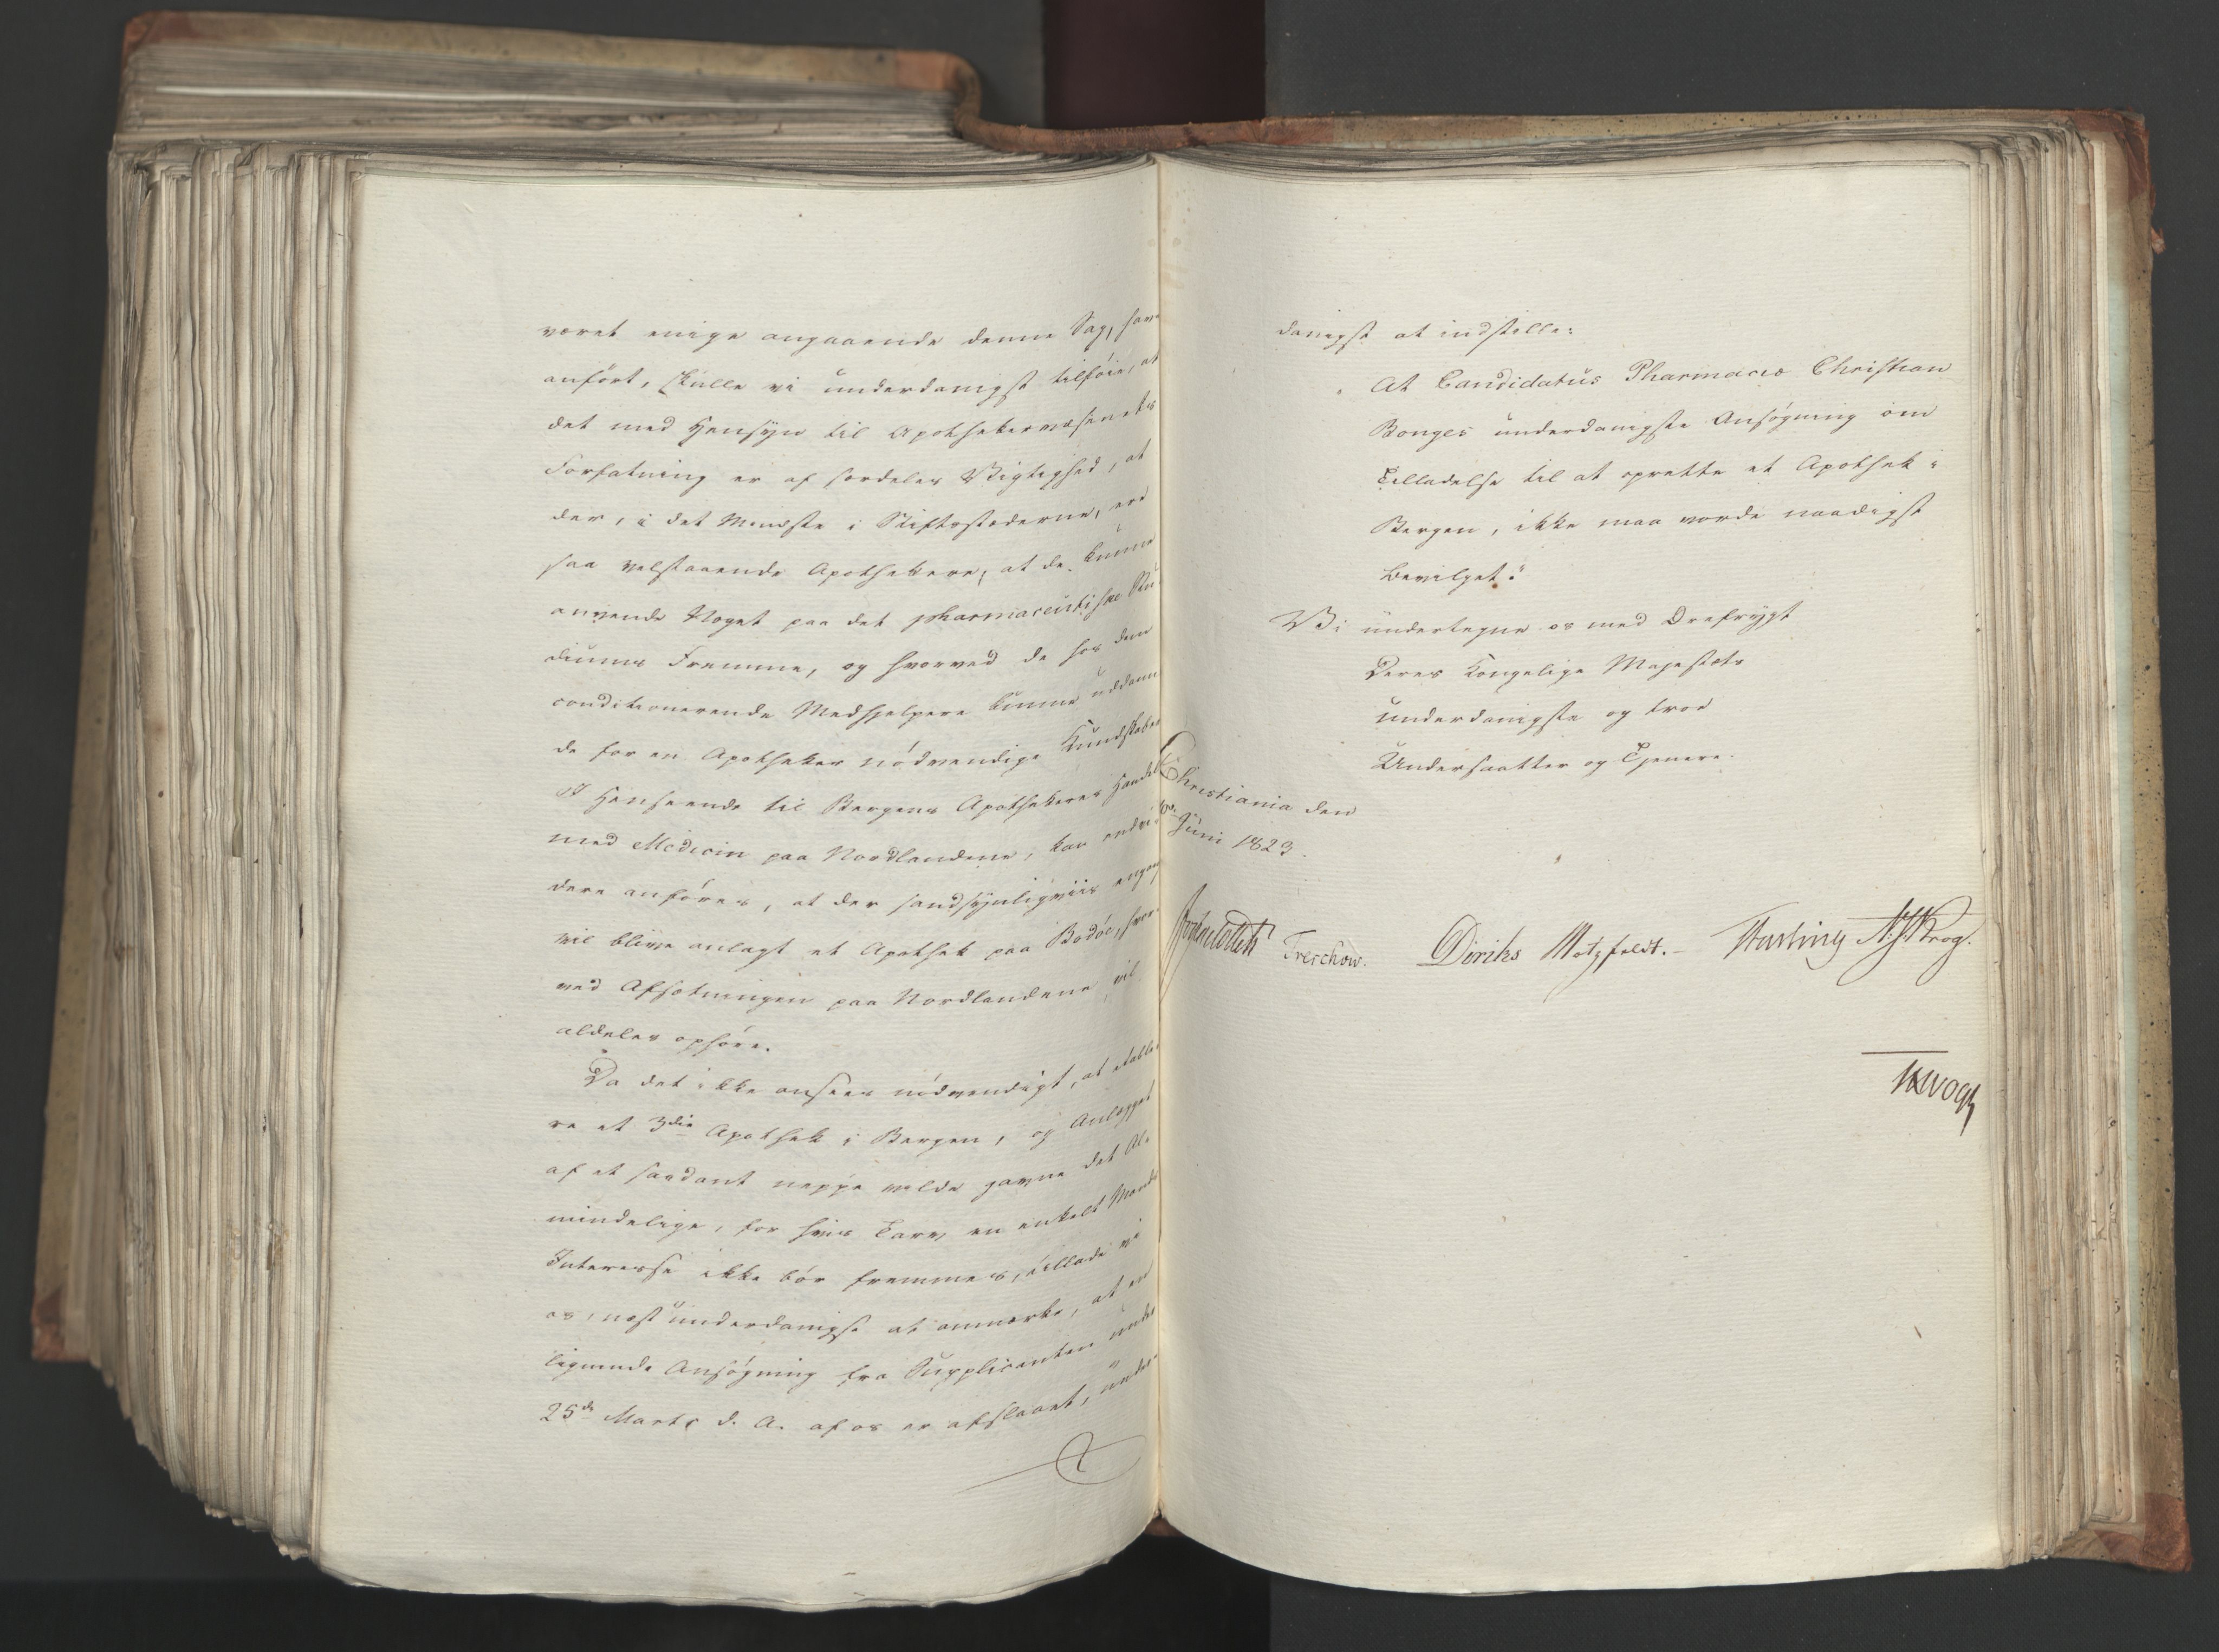 været enige angaaende denne Sag, have
anført, skulle vi underdanigst tilføie, at
det med Hensyn til Apothekervæsenets
Forfatning er af særdeles Vigtighed, at
der, i det Mindste i Stiftsstæderne, ere
saa velstaaende Apothekere, at de kunne
anvende Noget paa det pharmaceutiske Stu
diums Fremme, og hvorved de hos dem
conditionerende Medhjelpere kunne uddann
de for en Apotheker nödvendige Kundskaber
I Henseende til Bergens Apothekeres Handel
med Medicin paa Nordlandene, kan endvi
dere anföres, at der sandsynligviis engang
vil blive anlagt et Apothek paa Bodöe, hvor
ved Afsætningen paa Nordlandene vil
aldeles ophöre.
Da det ikke ansees nödvendigt, at etable
re et 3die Apothek i Bergen, og Anlægget
af et saadant neppe vilde gavne det Al-
mindelige, for hvis Tarv en enkelt Mands
Interesse ikke bör fremmes, tillade vi
os, næst underdanigst at anmærke, at en
lignende Ansögning fra Supplicanten under
25de Marts d. A. af os er afslaaet, under-
danigst at indstille:
"At Candidatus Pharmaciæ Christian
Bonges underdanigste Ansögning om
Tilladelse til at oprette et Apothek i
Bergen, ikke maa vorde naadigst
bevilget."
Vi undertegne os med Ærefrygt
Deres Kongelige Majestæts
underdanigste og troe
Undersaatter og Tjenere.
Christiania den
Juni 1823.
Treschow. Diriks Motzfeldt. Fasting Krog.
Vogt